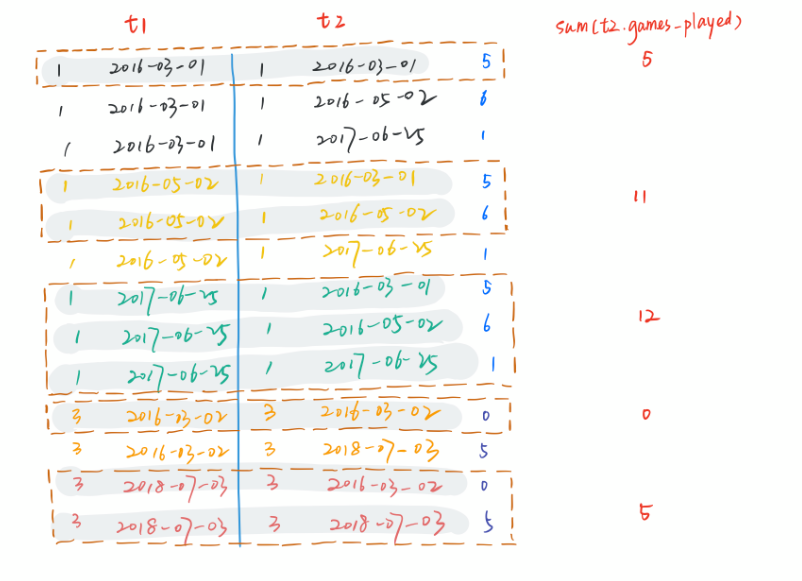 t1 t2 sum(t2.games_played)
1 2016-03-01 1 2016-03-01 5 5
1 2016-03-01 1 2016-05-02 6
1 2016-03-01 1 2017-06-25 1
1 2016-05-02 1 2016-03-01 5
1 2016-05-02 1 2016-05-02 6 11
1 2016-05-02 1 2017-06-25 1
1 2017-06-25 1 2016-03-01 5
1 2017-06-25 1 2016-05-02 6 12
1 2017-06-25 1 2017-06-25 1
3 2016-03-02 3 2016-03-02 0 0
3 2016-03-02 3 2018-07-03 5
3 2018-07-03 3 2016-03-02 0
3 2018-07-03 3 2018-07-03 5 5